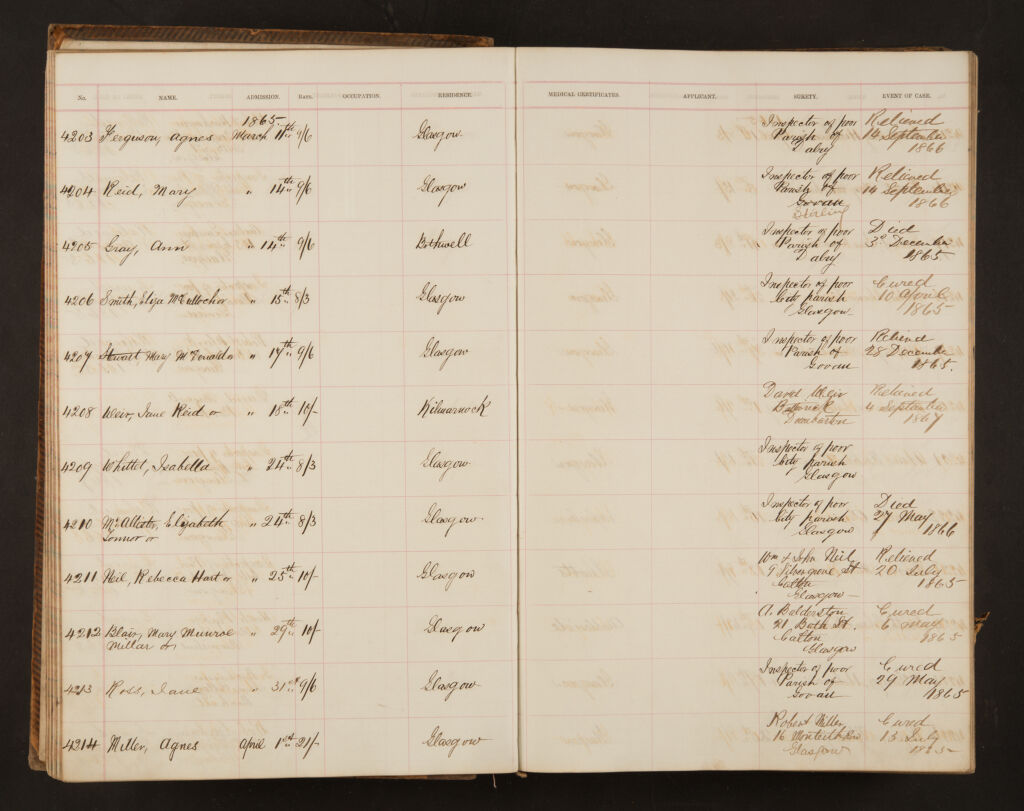 No. NAME. ADMISSION. RATE. OCCUPATION. RESIDENCE. MEDICAL CERTIFICATES. APPLICANT. SURETY. EVENT OF CASE.
1865.
4203 Ferguson, Agnes March 11th 9/6 Glasgow Inspector of poor Relieved
Parish of 14 September
Dalry 1866
4204 Reid, Mary " 14th 9/6 Glasgow Inspector of poor Relieved
Parish of 14 September
Govan 1866
Stirling
4205 Gray, Ann " 14th 9/6 Bothwell Inspector of poor Died
Parish of 3d December
Dalry 1865
4206 Smith, Eliza McCulloch or " 15th 8/3 Glasgow Inspector of poor Cured
City parish 10 April
Glasgow 1865
4207 Stewart Mary McDonald or " 17th 9/6 Glasgow Inspector of poor Relieved
Parish of 28 December
Govan 1865.
4208 Weir, Jane Reid or " 18th 10/- Kilmarnock David Weir Relieved
4 September
Dumbarton 1867
4209 Whittet, Isabella " 24th 8/3 Glasgow Inspector of poor
City parish
Glasgow
4210 McAllister, Elizabeth " 24th 8/3 Glasgow Inspector of poor Died
Connor or City parish 27 May
Glasgow 1866
4211 Neil, Rebecca Hart or " 25th 10/- Glasgow Wm & John Neil Relieved
9 Silvergrove St 20 July
Calton 1865
Glasgow
4212 Blair, Mary Munroe " 29th 10/- Glasgow A. Balderston Cured
Millar or 21, St. 6 May
Calton 1865
Glasgow
4213 Ross, Jane " 31st 9/6 Glasgow Inspector of poor Cured
Parish of 29 May
Govan 1865
4214 Miller, Agnes April 1st 21/- Glasgow Robert Miller Cured
16 Monteith Row 13 July
Glasgow 1865